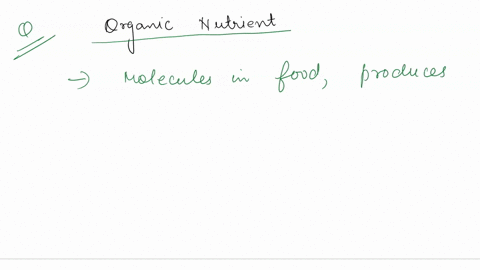 Q Organic Nutrient
→ Molecules in food, produces